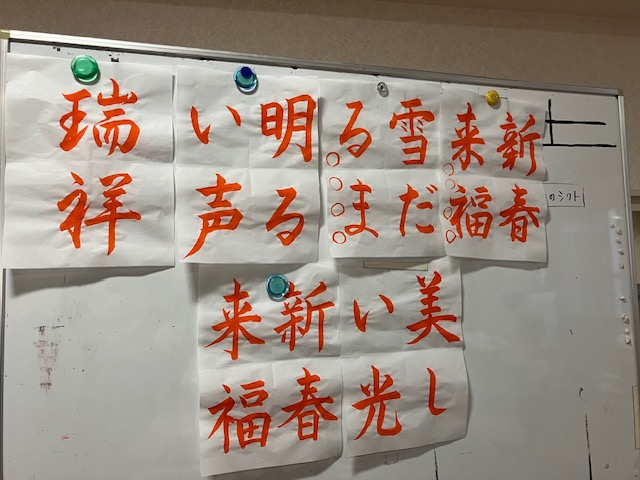 新春
来福
雪だ
るま
明る
い声
瑞祥
美し
い光
新春
来福
のシフト